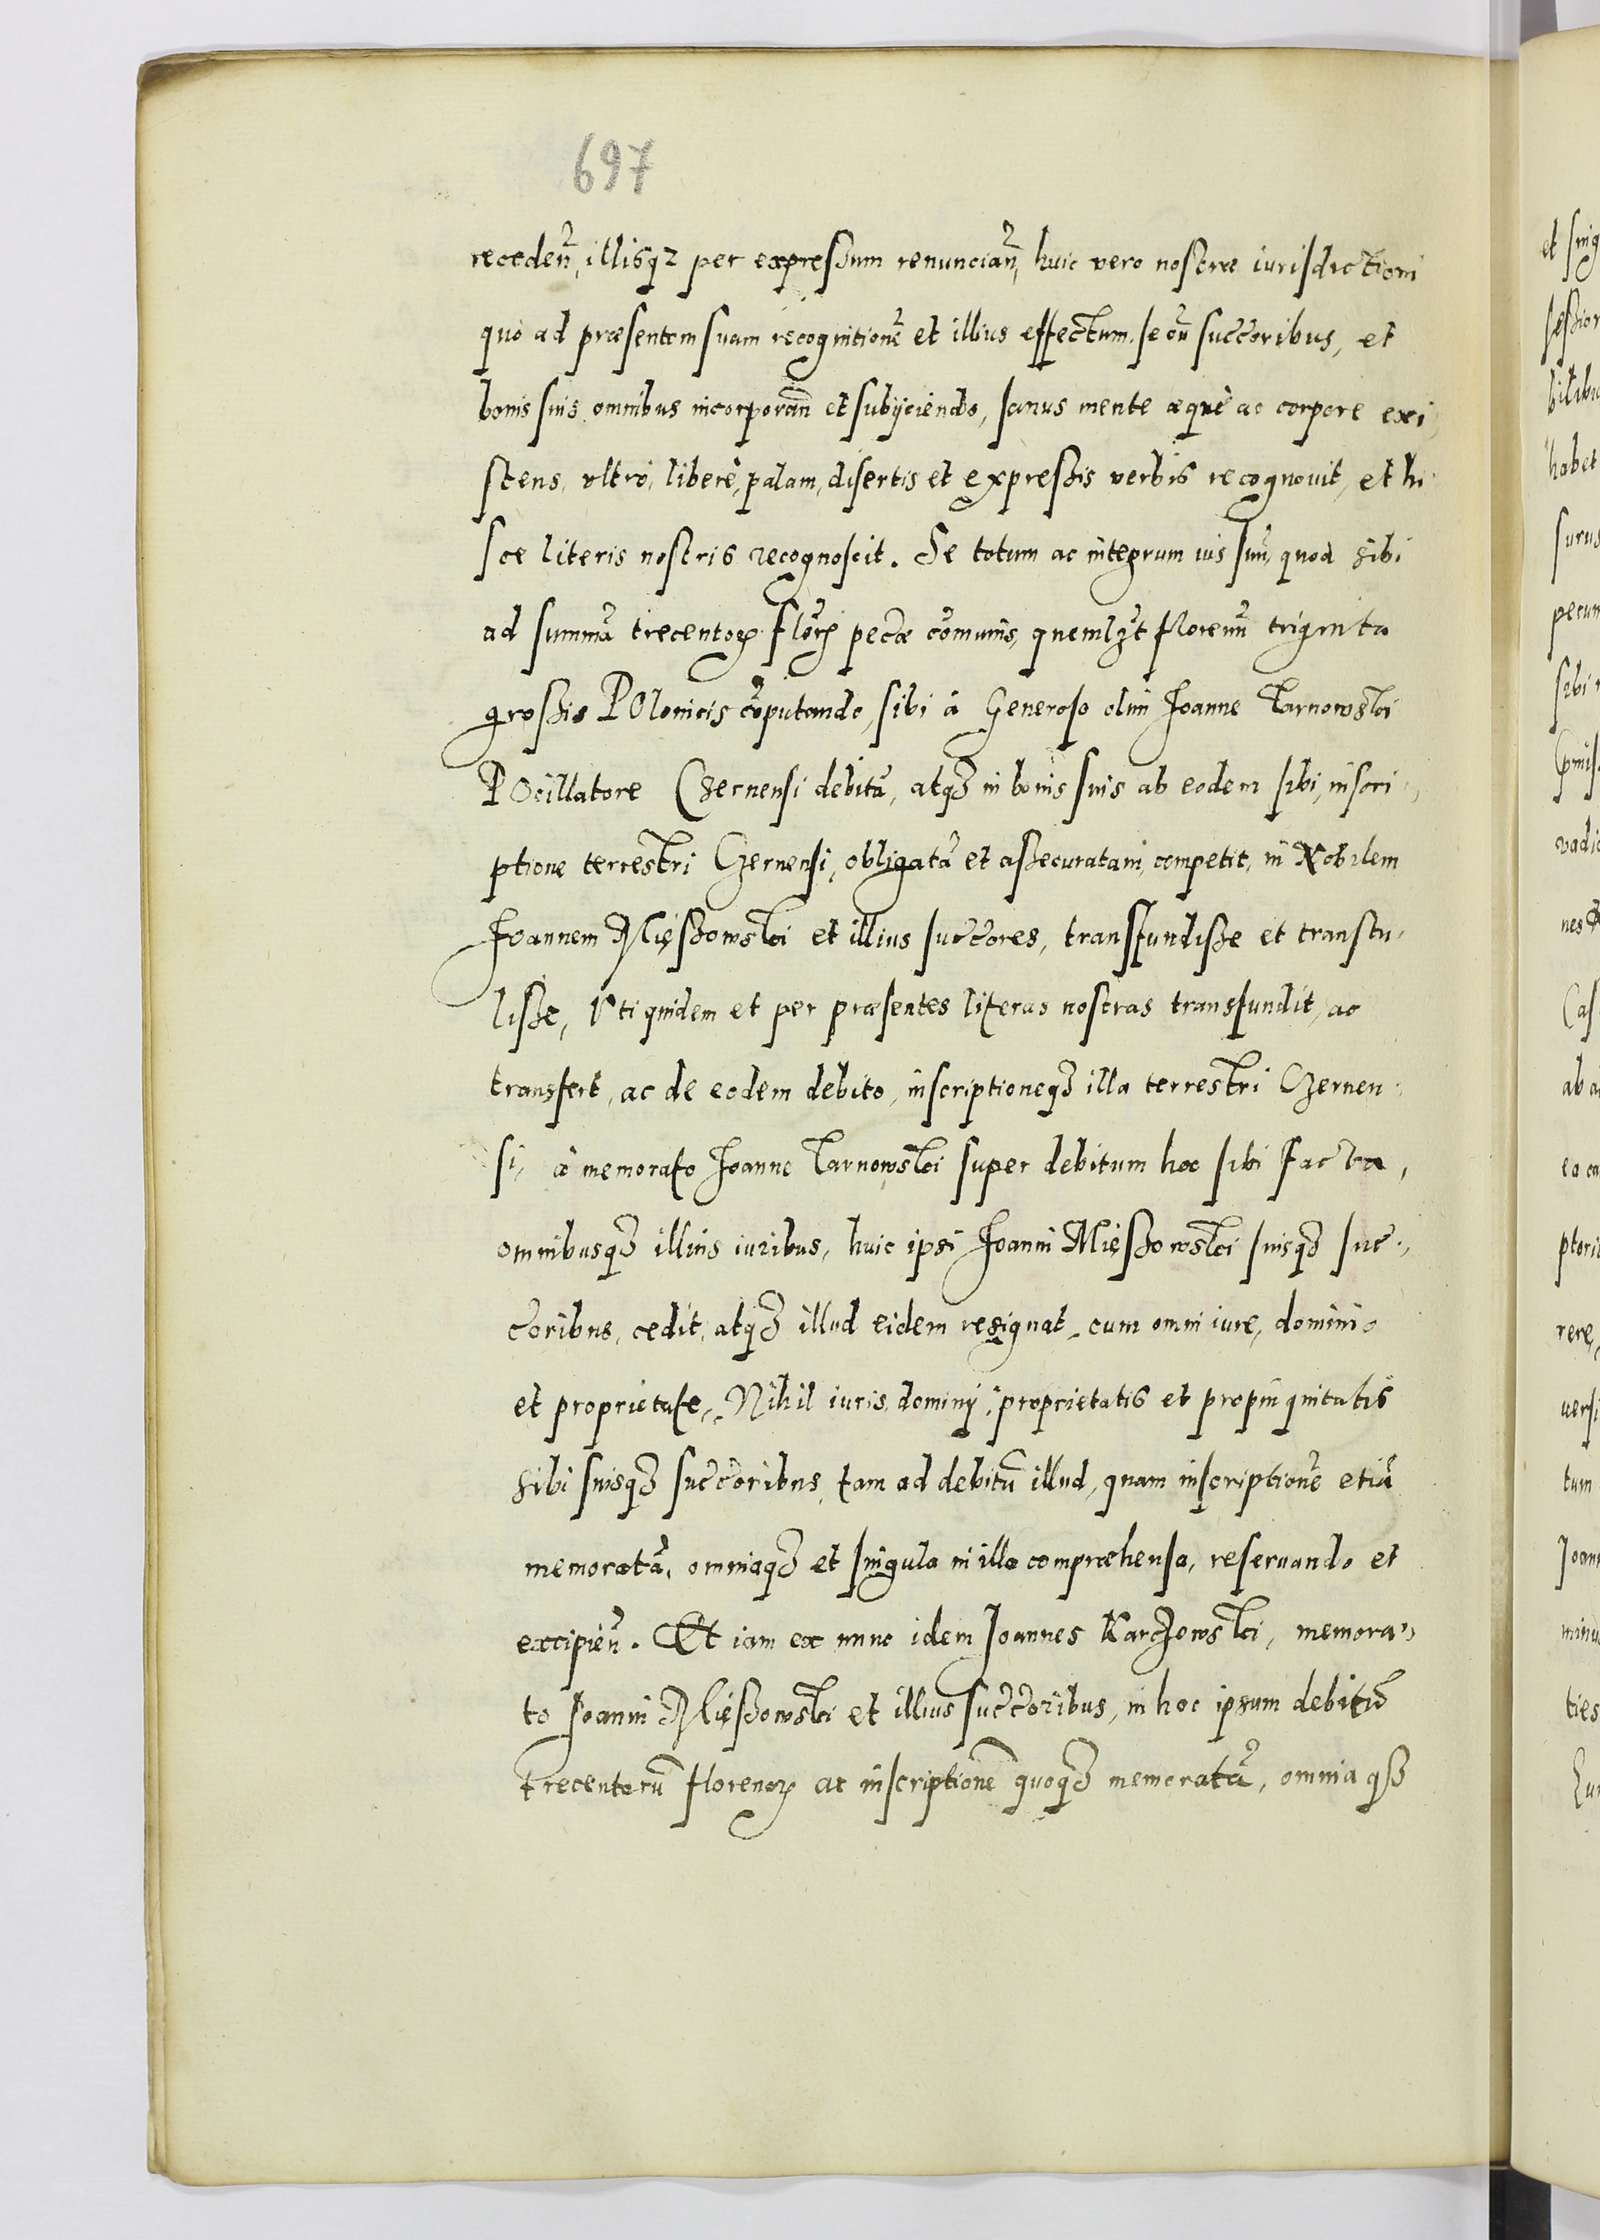 697
recedeñ, illisqꝫ per expressum renuncian̄, huic vero nostræ iurisdictioni
quò ad præsentem suam recognitionē et illius effectum, se cū succōribus, et
bonis suis omnibus incorporan̄ et subijciendo, sanus mente æquè ac corpore exi,
stens, vltrò, liberè, palam, disertis et expressis verbis recognouit, et hi
sce literis nostris recognoscit. Se totum ac integrum ius suū, quod sibi
ad summā trecentoꝝ florꝝ pec̄æ cōmunis, quemlꝫt florenū triginta
grossis POlonicis cōputando, sibi à Generoso olim Joanne Tarnowski
POcillatore Czernensi debitā, atqꝫ in bonis suis ab eodem sibi, inscri,
ptione terrestri Czernensi, obligatā et assecuratam, competit, in Nobilem
Joannem Mięssowski et illius succōres, transfundisse et transtu,
lisse, Vti quidem et per præsentes literas nostras transfundit, ac
transfert, ac de eodem debito, inscriptioneqꝫ illa terrestri Czernen,
si, à memorato Joanne Tarnowski super debitum hoc sibi facta,
omnibusqꝫ illius iuribus, huic ipsi Joanni Mięssowski suisqꝫ suc,
cōribus, cedit, atqꝫ illud eidem resignat, cum omni iure, dominio
et proprietate, Nihil iuris dominij, proprietatis et propinquitatis
sibi suisqꝫ succōribus, tam ad debitū illud, quam inscriptionē etiā
memoratā, omniaqꝫ et singula in illa compræhensa, reseruando et
excipien̄. Et iam ex nunc idem Joannes Karczowski, memora,
to Joanni Mięssowski et illius succōribus, in hoc ipsum debitū
trecentorū florenoꝝ ac inscriptionē quoqꝫ memoratā, omnia qꝫ
et sing
sessior
habet
surus
pecun
sibi
vadi
nes
Cas
ab a
ptori
rere,
uersi
tum
Joan
minu
ties